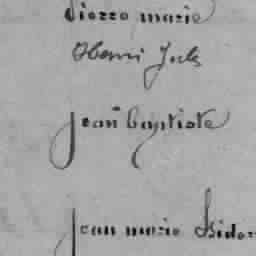 Pierre marie
Henri Jules
jean baptiste
jean marie Isidor